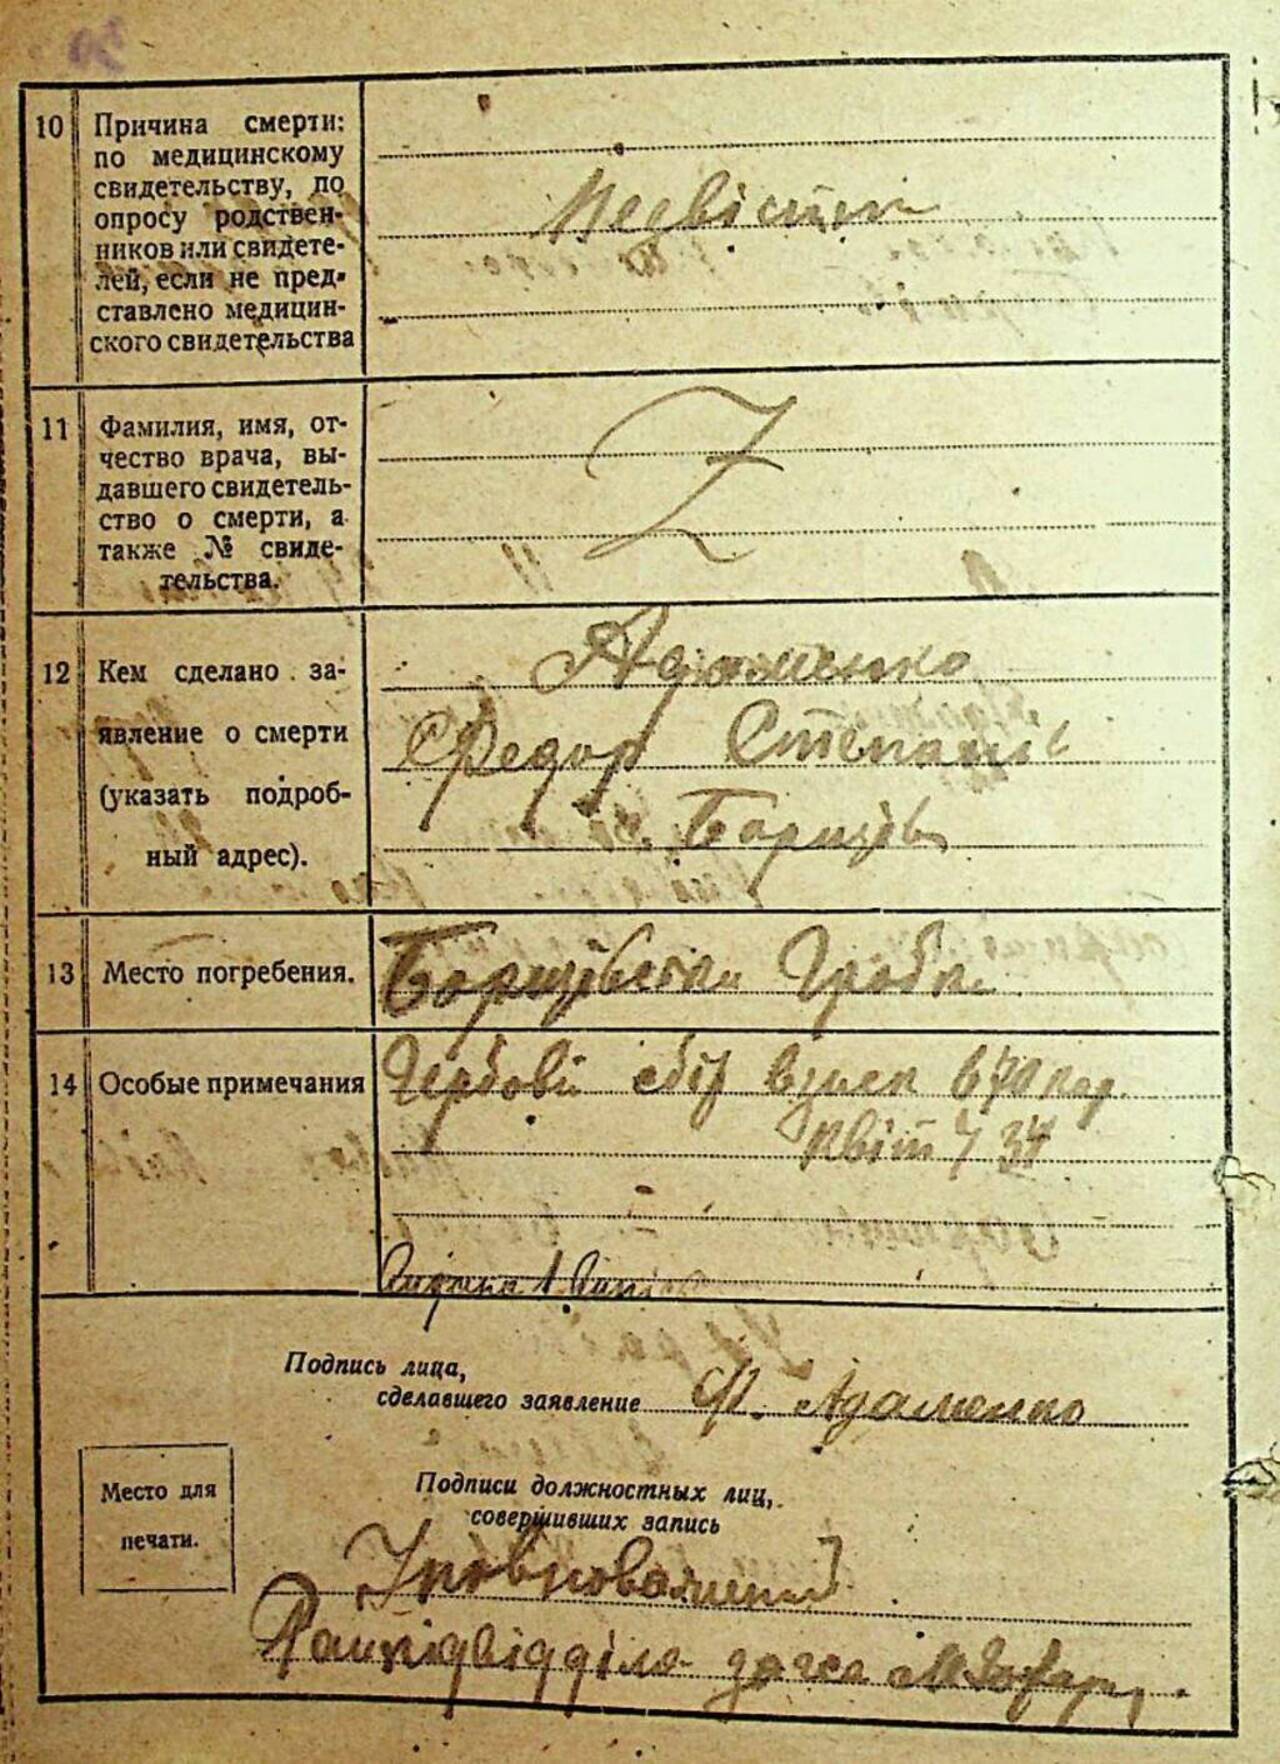 10 Причина смерти:
по медицинскому
свидетельству, по
опросу родствен-
ников или свидете-
лей, если не пред-
ставлено медицин-
ского свидетельства
11 Фамилия, имя, от-
чество врача, вы-
давшего свидетель-
ство о смерти, а
также № свиде-
тельства.
Z
12 Кем сделано за-
явление о смерти
(указать подроб-
ный адрес).
Адаменко
Федор Степанів
с. Борщів
13 Место погребения.
Борщівськи Гробки
14 Особые примечания
Гербовий збір
Квіт 7 34
Подпись лица,
сделавшего заявление Ф. Адаменко
Место для
печати.
Подписи должностных лиц,
совершивших запись
Уповноважений